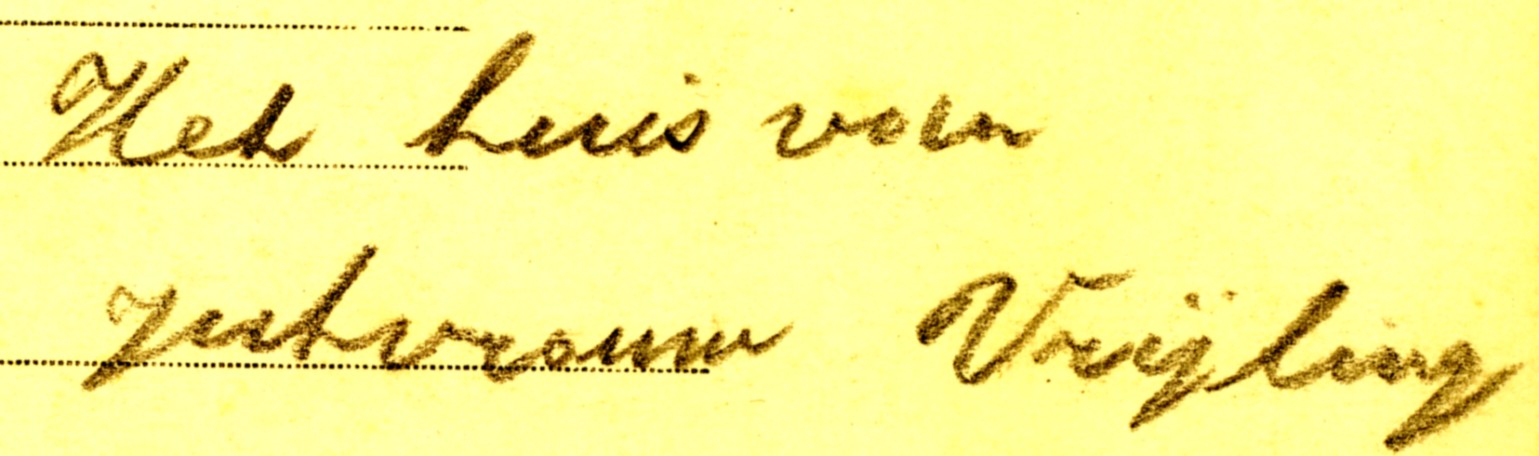 Het huis van
Juhvrouw Vrijling